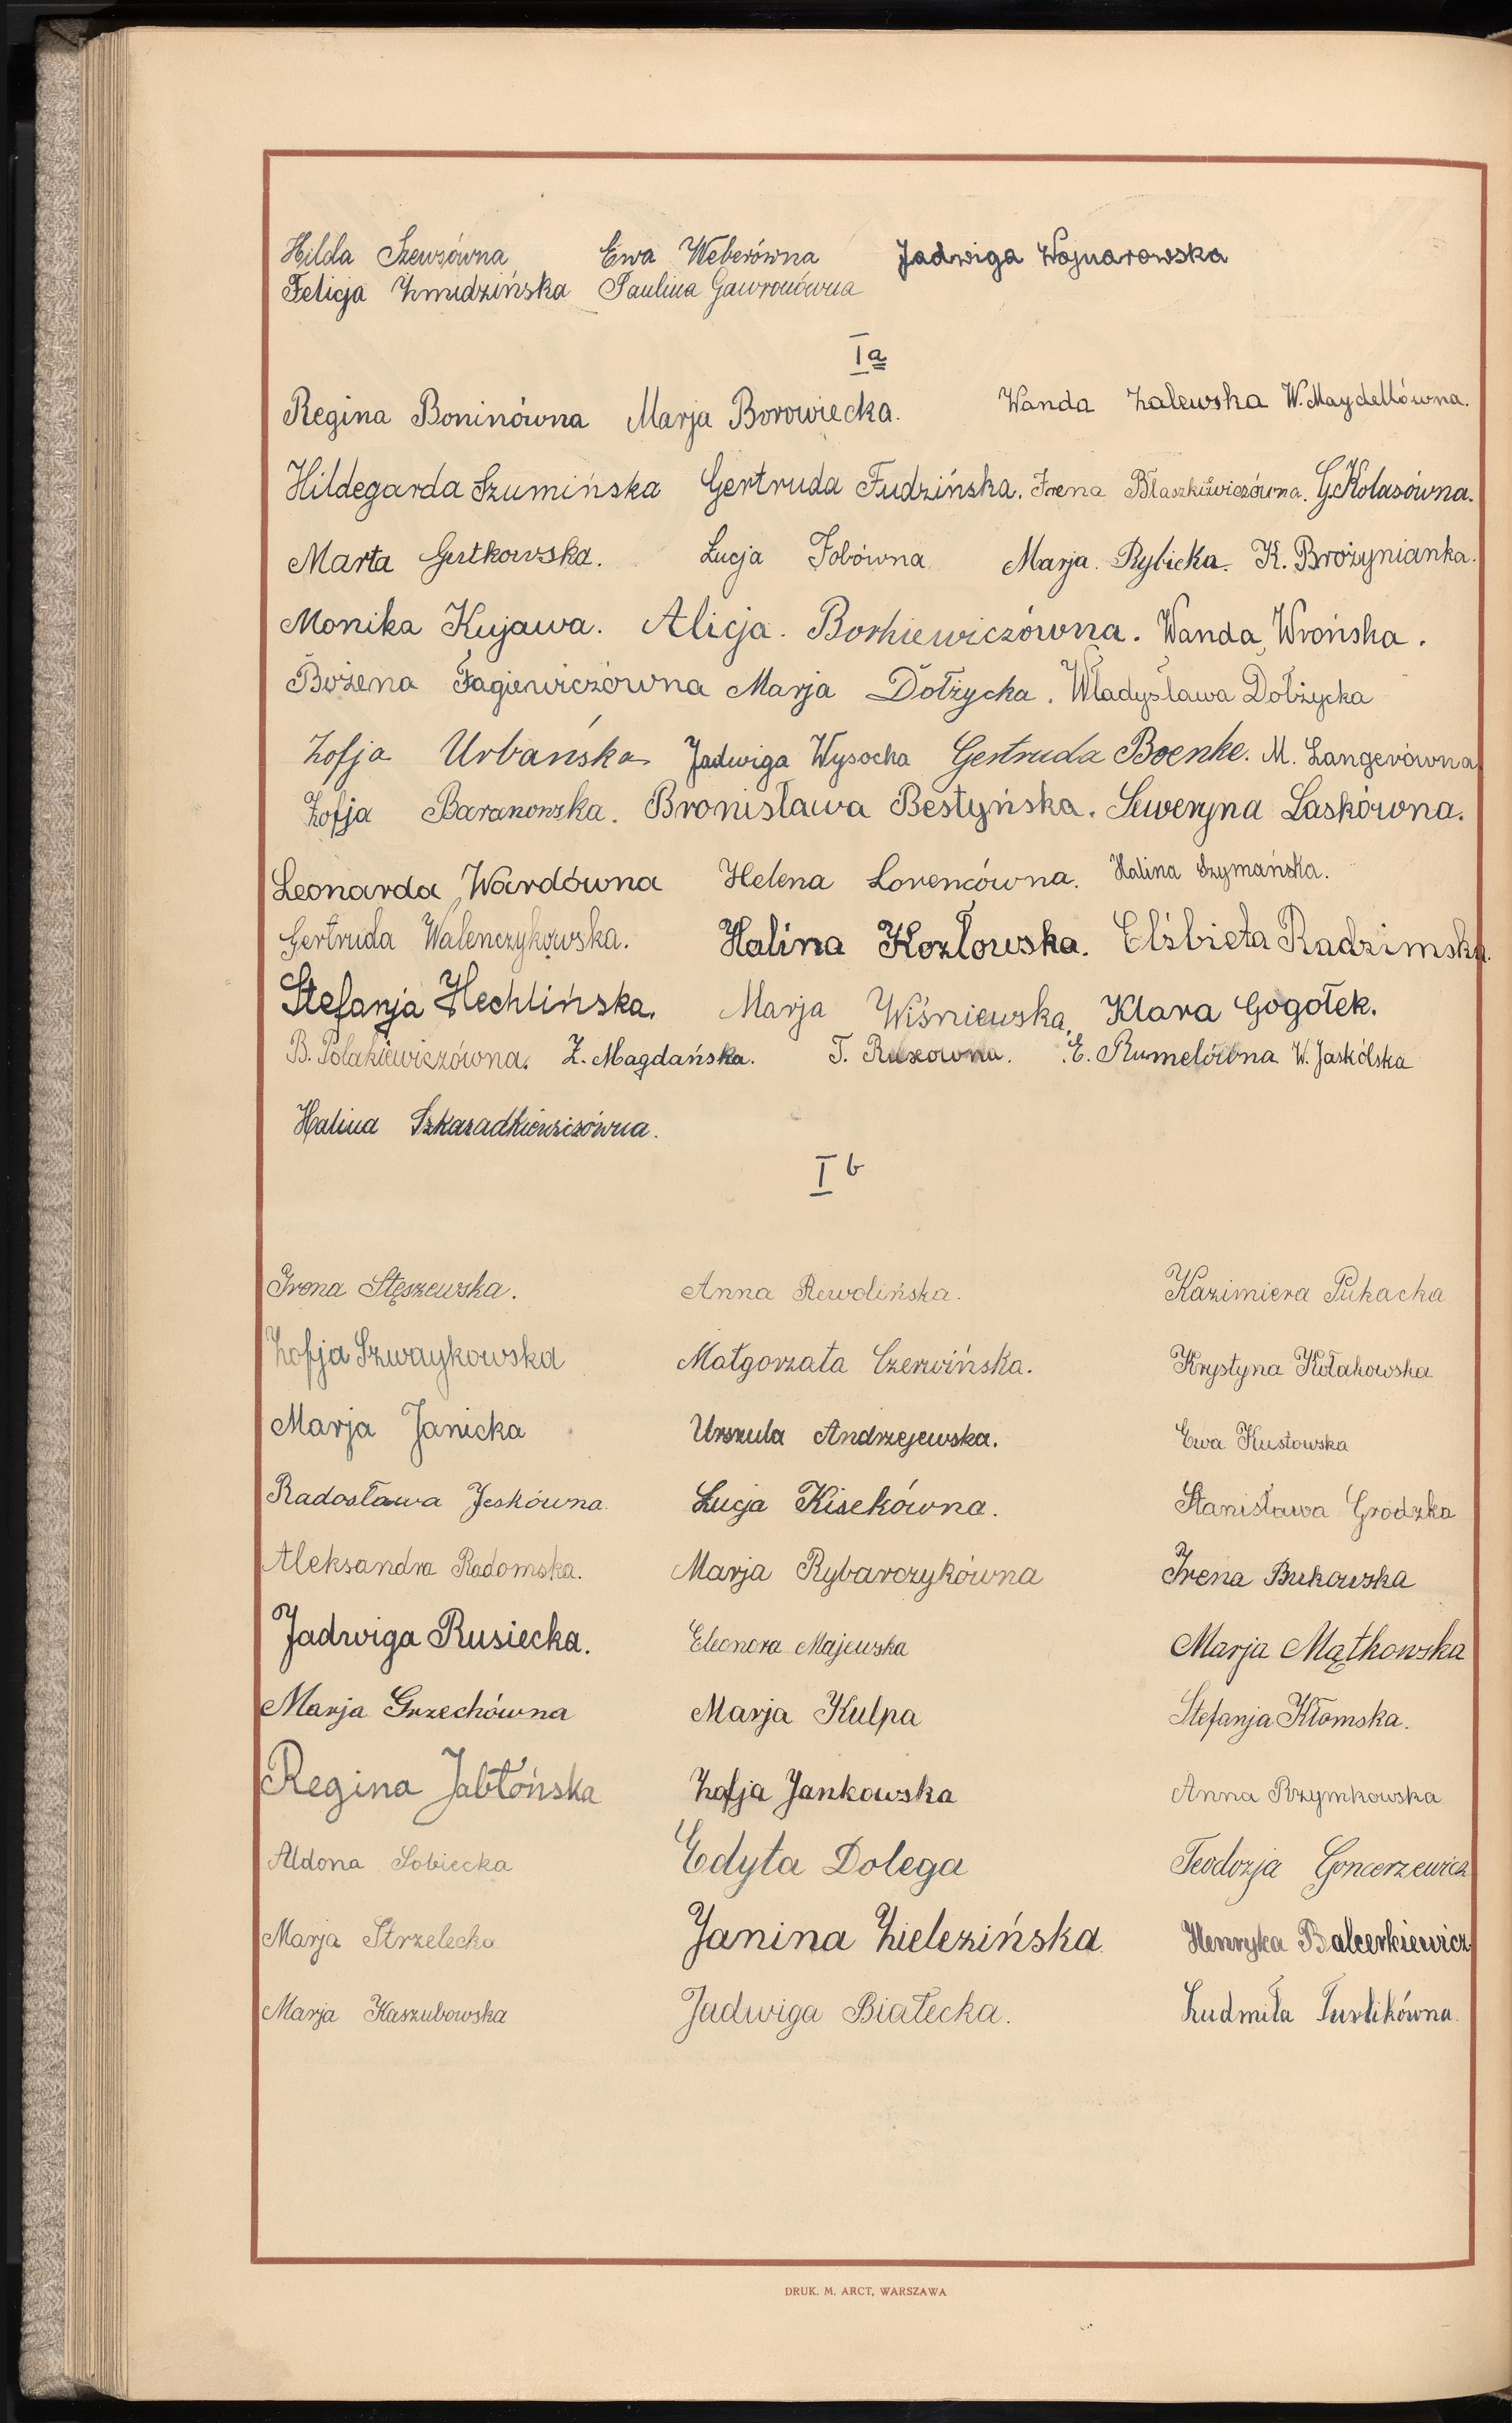 Hilda Szewsówna Ewa Weberówna Jadwiga Wojnarowska
Felicja Żmudzińska Paulina Gawronówna
I a
Regina Boninówna Marja Borowiecka. Wanda Zalewska W. Maydellówna.
Hildegarda Szumińska Gertruda Fudzińska. Irena Błaszkiewiczówna. G. Kolasówna.
Marta Gutkowska. Łucja Fobówna Marja Rybicka. K. Brożynianka.
Monika Kujawa. Alicja Borkiewiczówna. Wanda Wrońska.
Bożena Fagiewiczówna Marja Dołżycka. Władysława Dołżycka
Zofja Urbańska Jadwiga Wysocka Gertruda Boenke. M. Langerówna
Zofja Baranowska. Bronisława Bestyńska. Seweryna Laskówna.
Leonarda Wardówna Helena Lorencówna. Halina Szymańska.
Gertruda Walenczykowska. Halina Kozłowska. Elżbieta Radzimska.
Stefanja Hechlińska. Marja Wiśniewska, Klara Gogołek.
B. Polakiewiczówna. Z. Magdańska. T. E. Rumelówna W. Jaskólska
Halina Szkaradkiewiczówna.
I b
Irena Stęszewska. Anna Rewolińska. Kazimiera Pukacka
Zofja Szwaykowska Małgorzata Czerwińska. Krystyna Kołakowska
Marja Janicka Urszula Andrzejewska. Ewa Kustowska
Radosława Jeskówna. Łucja Kisekówna. Stanisława Grodzka
Aleksandra Radomska. Marja Rybarczykówna Irena Bukowska
Jadwiga Rusiecka. Eleonora Majewska Marja Mątkowska
Marja Grzechówna Marja Kulpa Stefanja Kłomska.
Regina Jabłońska Zofja Jankowska Anna Rzymkowska
Aldona Sobiecka Edyta Dolega Teodozja Goncerzewicz
Marja Strzelecka Janina Zielezińska Henryka Balcerkiewicz
Marja Kaszubowska Jadwiga Białecka. Ludmiła Turlikówna.
DRUK. M. ARCT, WARSZAWA